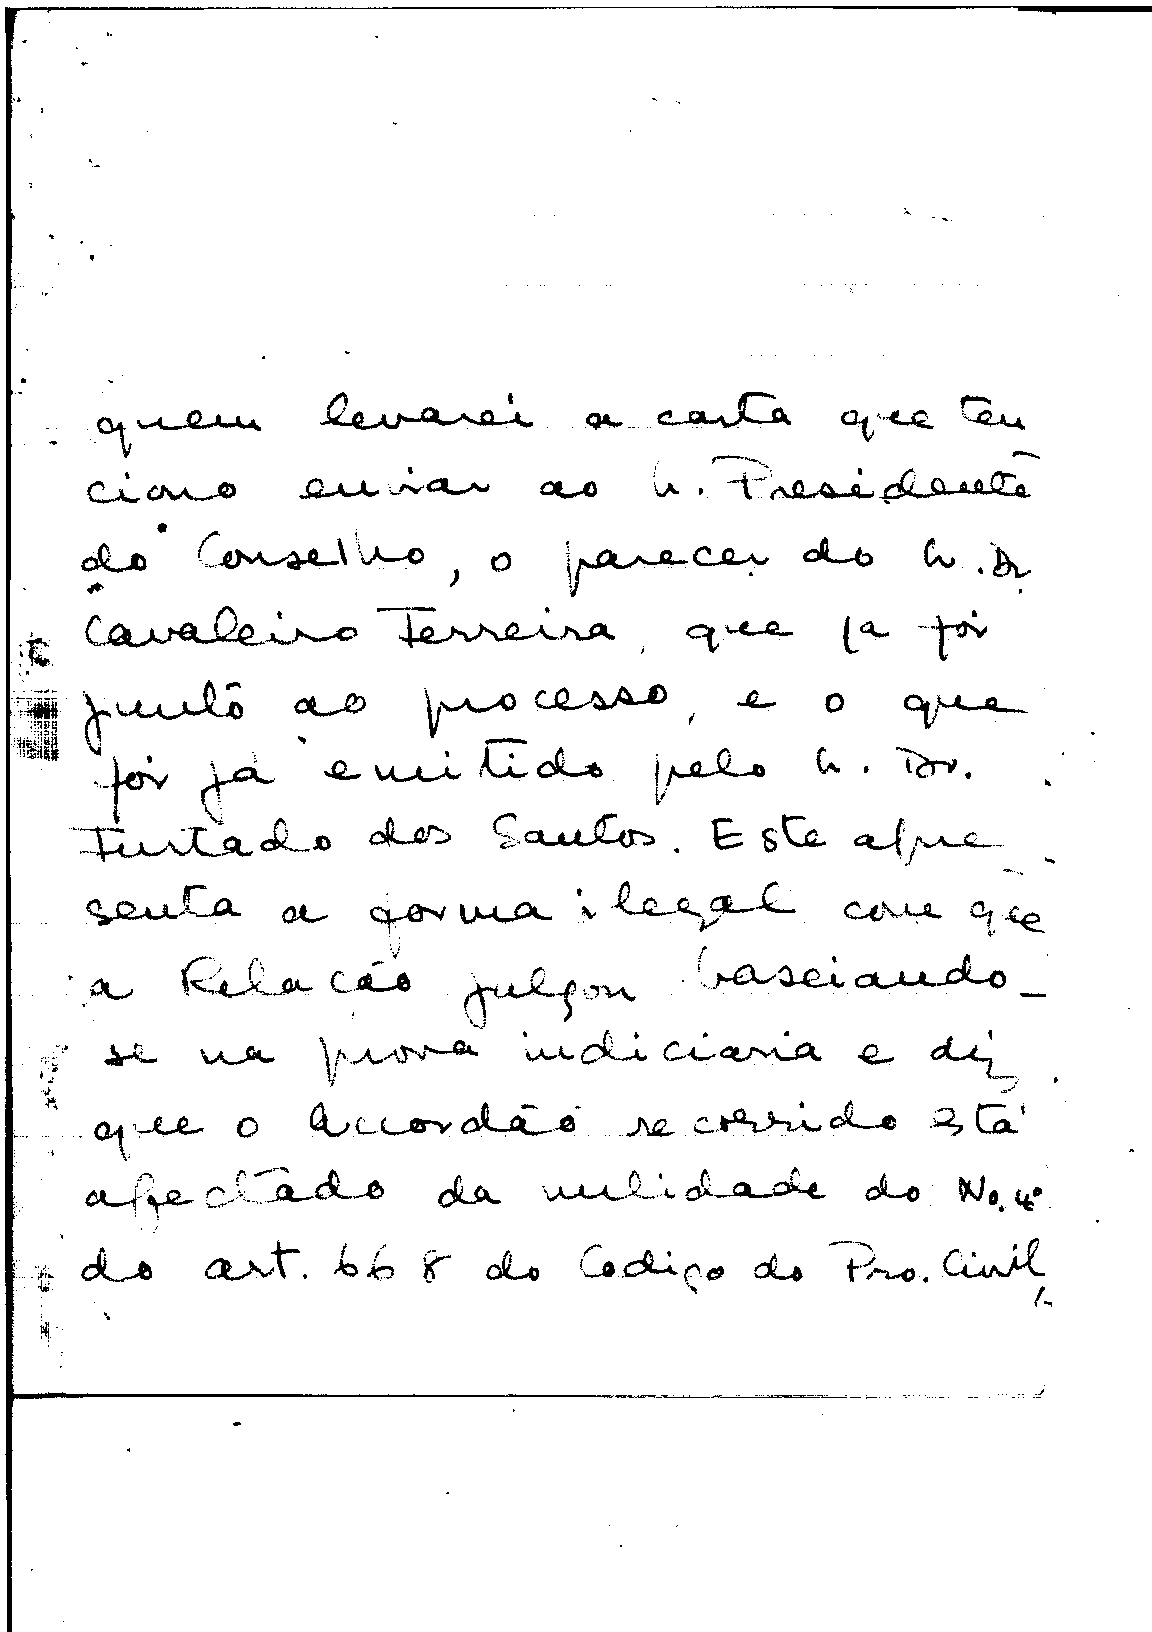 quem levarei a carta que ten
ciono enviar ao Sr. Presidente
do Conselho, o parecer do Sr. Dr
Cavaleiro Ferreira, que ja foi
junto ao processo, e o que
foi já emitido pelo Sr. Dr.
Furtado dos Santos. Este apre
senta a forma ilegal com que
a Relacão julgou baseiando-
se na prova indiciaria e diz
que o Accordão recorrido está
afectado da nulidade do No. 4º
do art. 668 do Codigo do Pro. Civil,